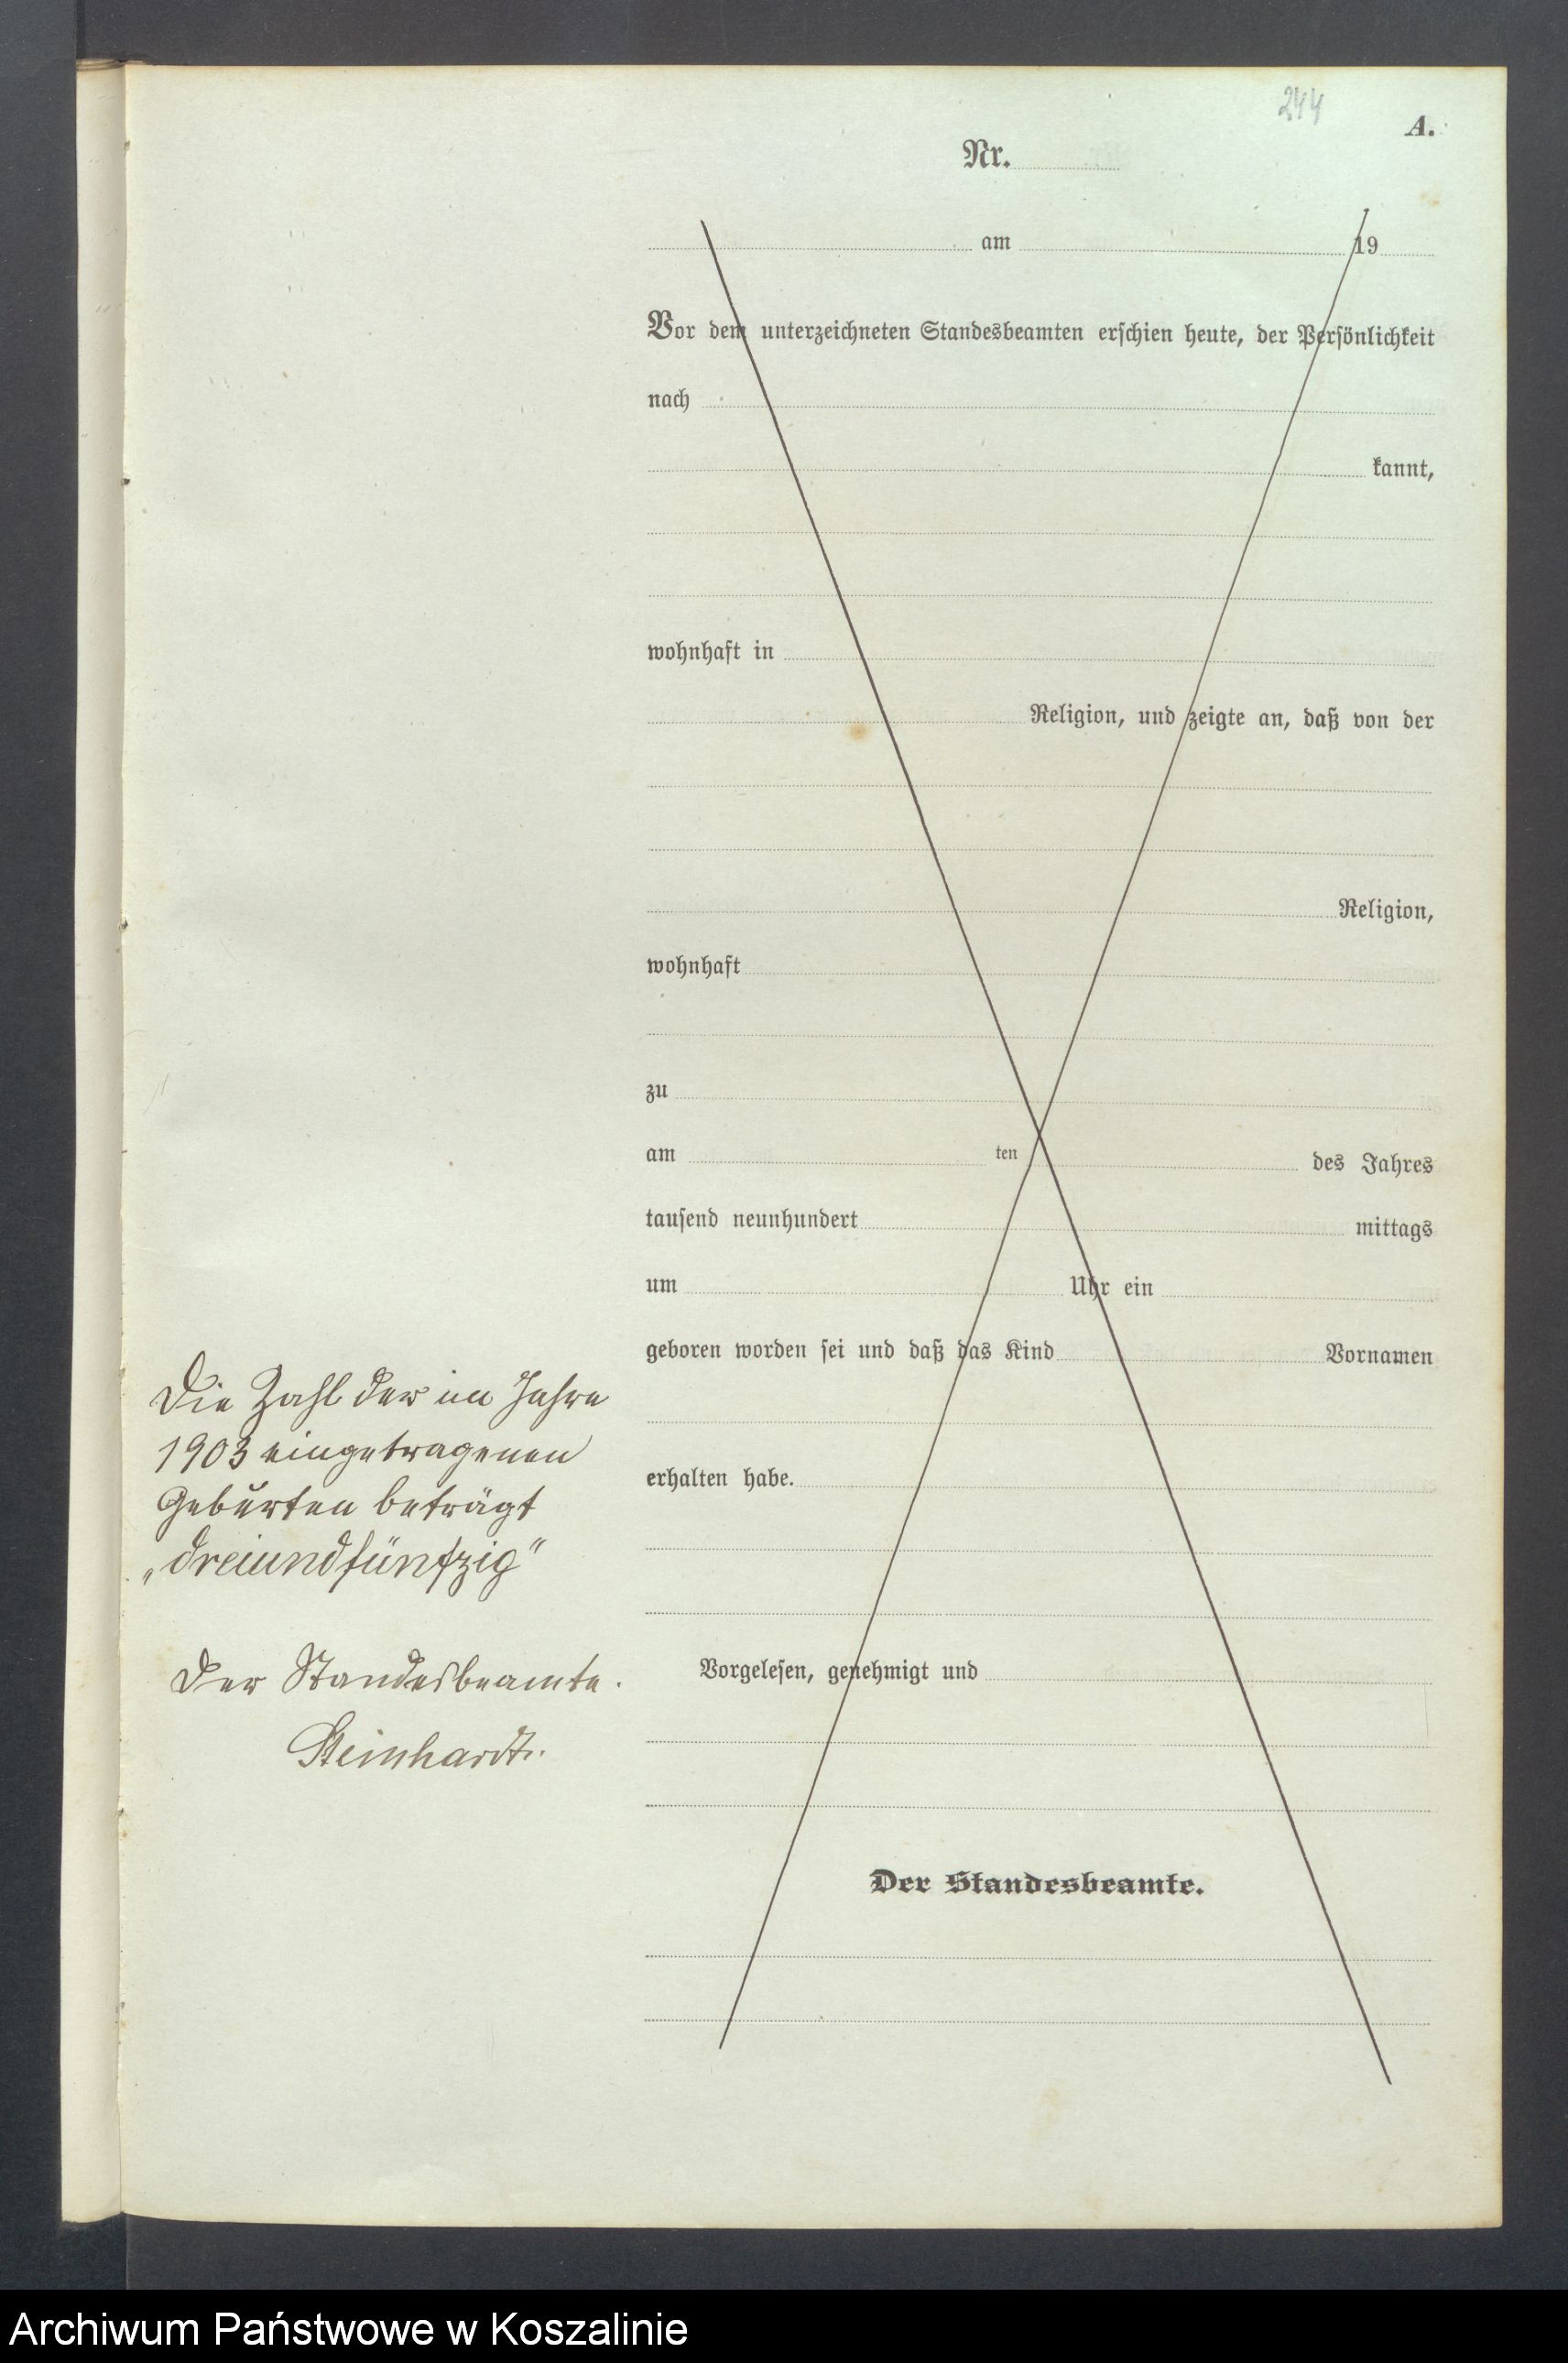 244
A.
Nr.
am 19
Vor dem unterzeichneten Standesbeamten erschien heute, der Persönlichkeit
nach
kannt,
wohnhaft in
Religion, und zeigte an, daß von der
Religion,
wohnhaft
zu
am ten des Jahres
tausend neunhundert mittags
um Uhr ein
geboren worden sei und daß das Kind Vornamen
erhalten habe.
Die Zahl der im Jahre
1903 eingetragenen
Geburten beträgt
„dreiundfünfzig“
Der Standesbeamte.
Steinhardt.
Vorgelesen, genehmigt und
Der Standesbeamte.
Archiwum Państwowe w Koszalinie